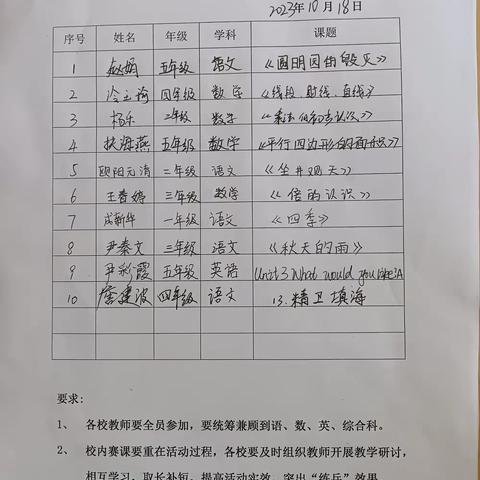 2023年10月18日
序号 姓名 年级 学科 课题
1 赵娟 五年级 语文 《圆明园的毁灭》
2 冷玉琦 四年级 数学 《线段、射线、直线》
3 杨乐 二年级 数学 《乘法的初步认识》
4 扶海燕 五年级 数学 《平行四边形的面积》
5 欧阳元清 二年级 语文 《坐井观天》
6 王春婷 三年级 数学 《倍的认识》
7 成新华 一年级 语文 《四季》
8 尹秦文 三年级 语文 《秋天的雨》
9 尹彩霞 五年级 英语 Unit 3 What would you like? A
10 建波 四年级 语文 13.精卫填海
要求:
1、 各校教师要全员参加，要统筹兼顾到语、数、英、综合科。
2、 校内赛课要重在活动过程，各校要及时组织教师开展教学研讨，
相互学习，取长补短，提高活动实效，突出“练兵”效果。